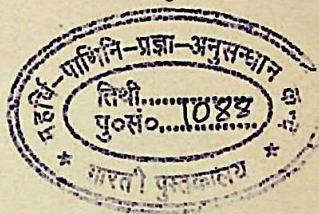 महर्षि-पाणिनि-प्रज्ञा-अनुसन्धान
तिथी..............
पु०सं०...1088
* भारती पुस्तकालय *